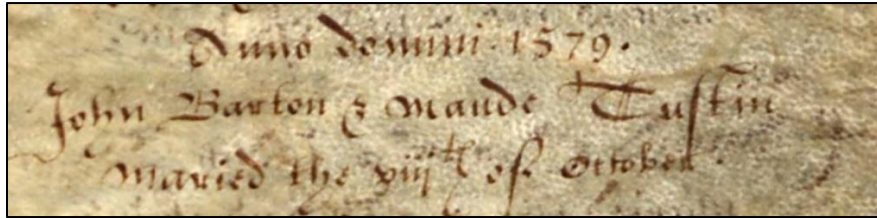 Anno domini 1579.
John Barton & Maude Tustin
Maried the xiijth of October